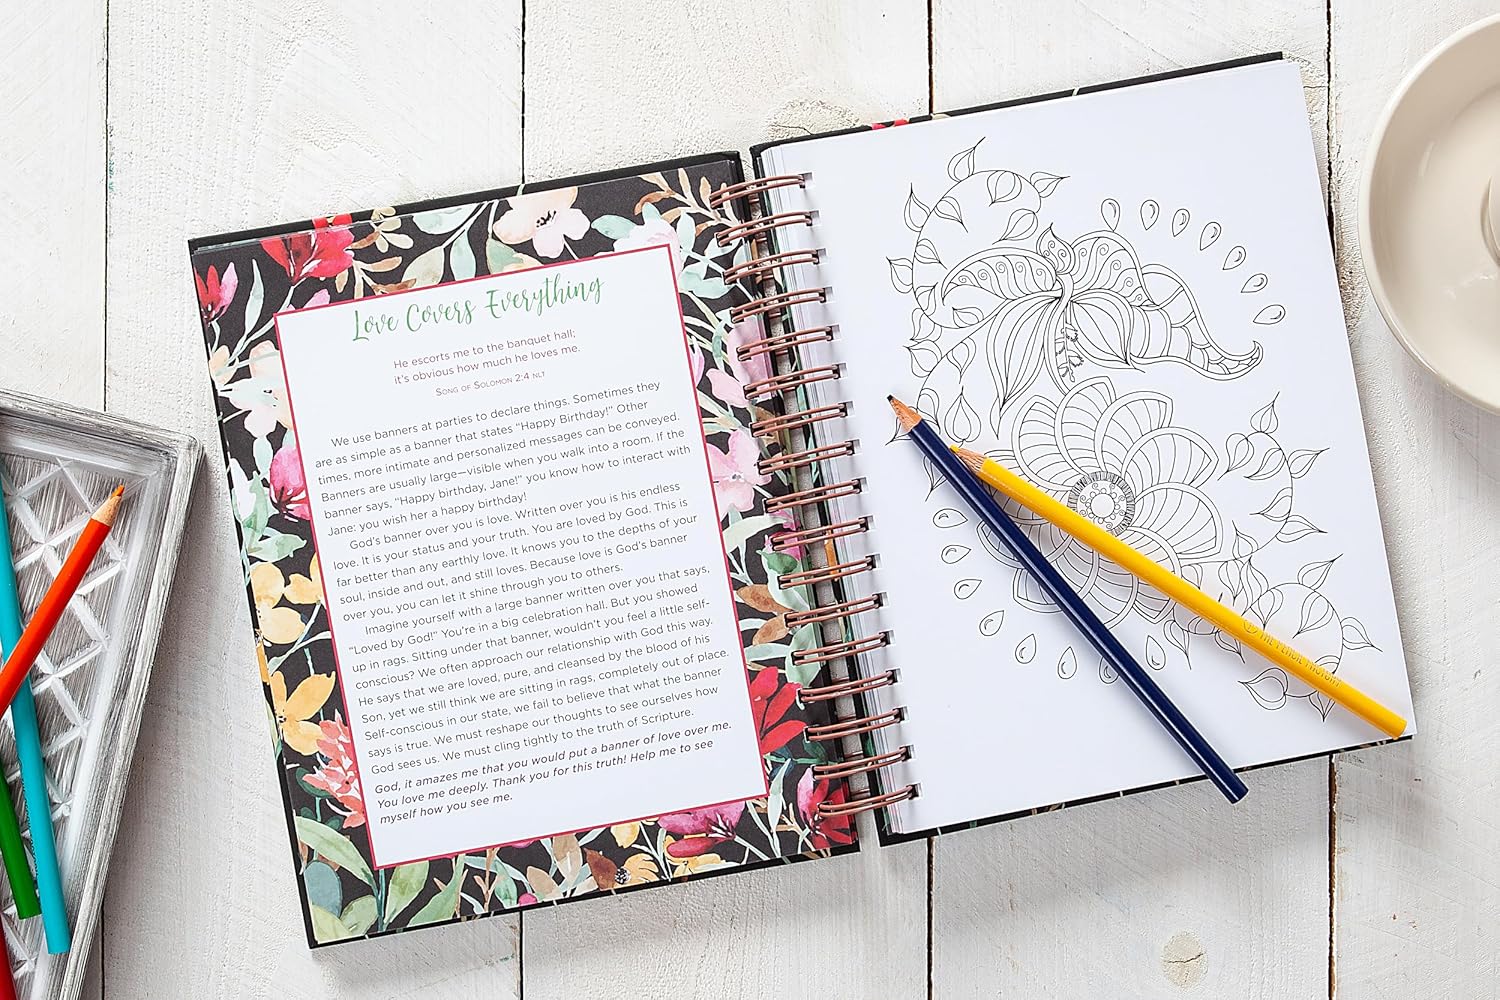 Love Covers Everything
He escorts me to the banquet hall;
it's obvious how much he loves me.
Song of Solomon 2:4 NLT
We use banners at parties to declare things. Sometimes they
are as simple as a banner that states “Happy Birthday!” Other
times, more intimate and personalized messages can be conveyed.
Banners are usually large—visible when you walk into a room. If the
banner says, “Happy birthday, Jane!” you know how to interact with
Jane: you wish her a happy birthday!
God's banner over you is love. Written over you is his endless
love. It is your status and your truth. You are loved by God. This is
far better than any earthly love. It knows you to the depths of your
soul, inside and out, and still loves. Because love is God's banner
over you, you can let it shine through you to others.
Imagine yourself with a large banner written over you that says,
“Loved by God!” You're in a big celebration hall. But you showed
up in rags. Sitting under that banner, wouldn't you feel a little self-
conscious? We often approach our relationship with God this way.
He says that we are loved, pure, and cleansed by the blood of his
Son, yet we still think we are sitting in rags, completely out of place.
Self-conscious in our state, we fail to believe that what the banner
says is true. We must reshape our thoughts to see ourselves how
God sees us. We must cling tightly to the truth of Scripture.
God, it amazes me that you would put a banner of love over me.
You love me deeply. Thank you for this truth! Help me to see
myself how you see me.